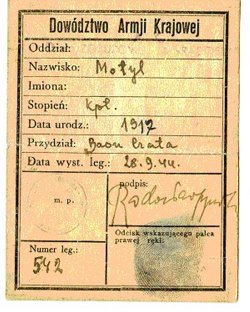 Dowództwo Armji Krajowej
Oddział:
Nazwisko: Motyl
Imiona:
Stopień: kpt.
Data urodz.: 1917
Przydział: Baon Czata
Data wyst. leg.: 28.9.44.
podpis:
m. p.
Odcisk wskazującego palca
prawej ręki:
Numer leg.:
542